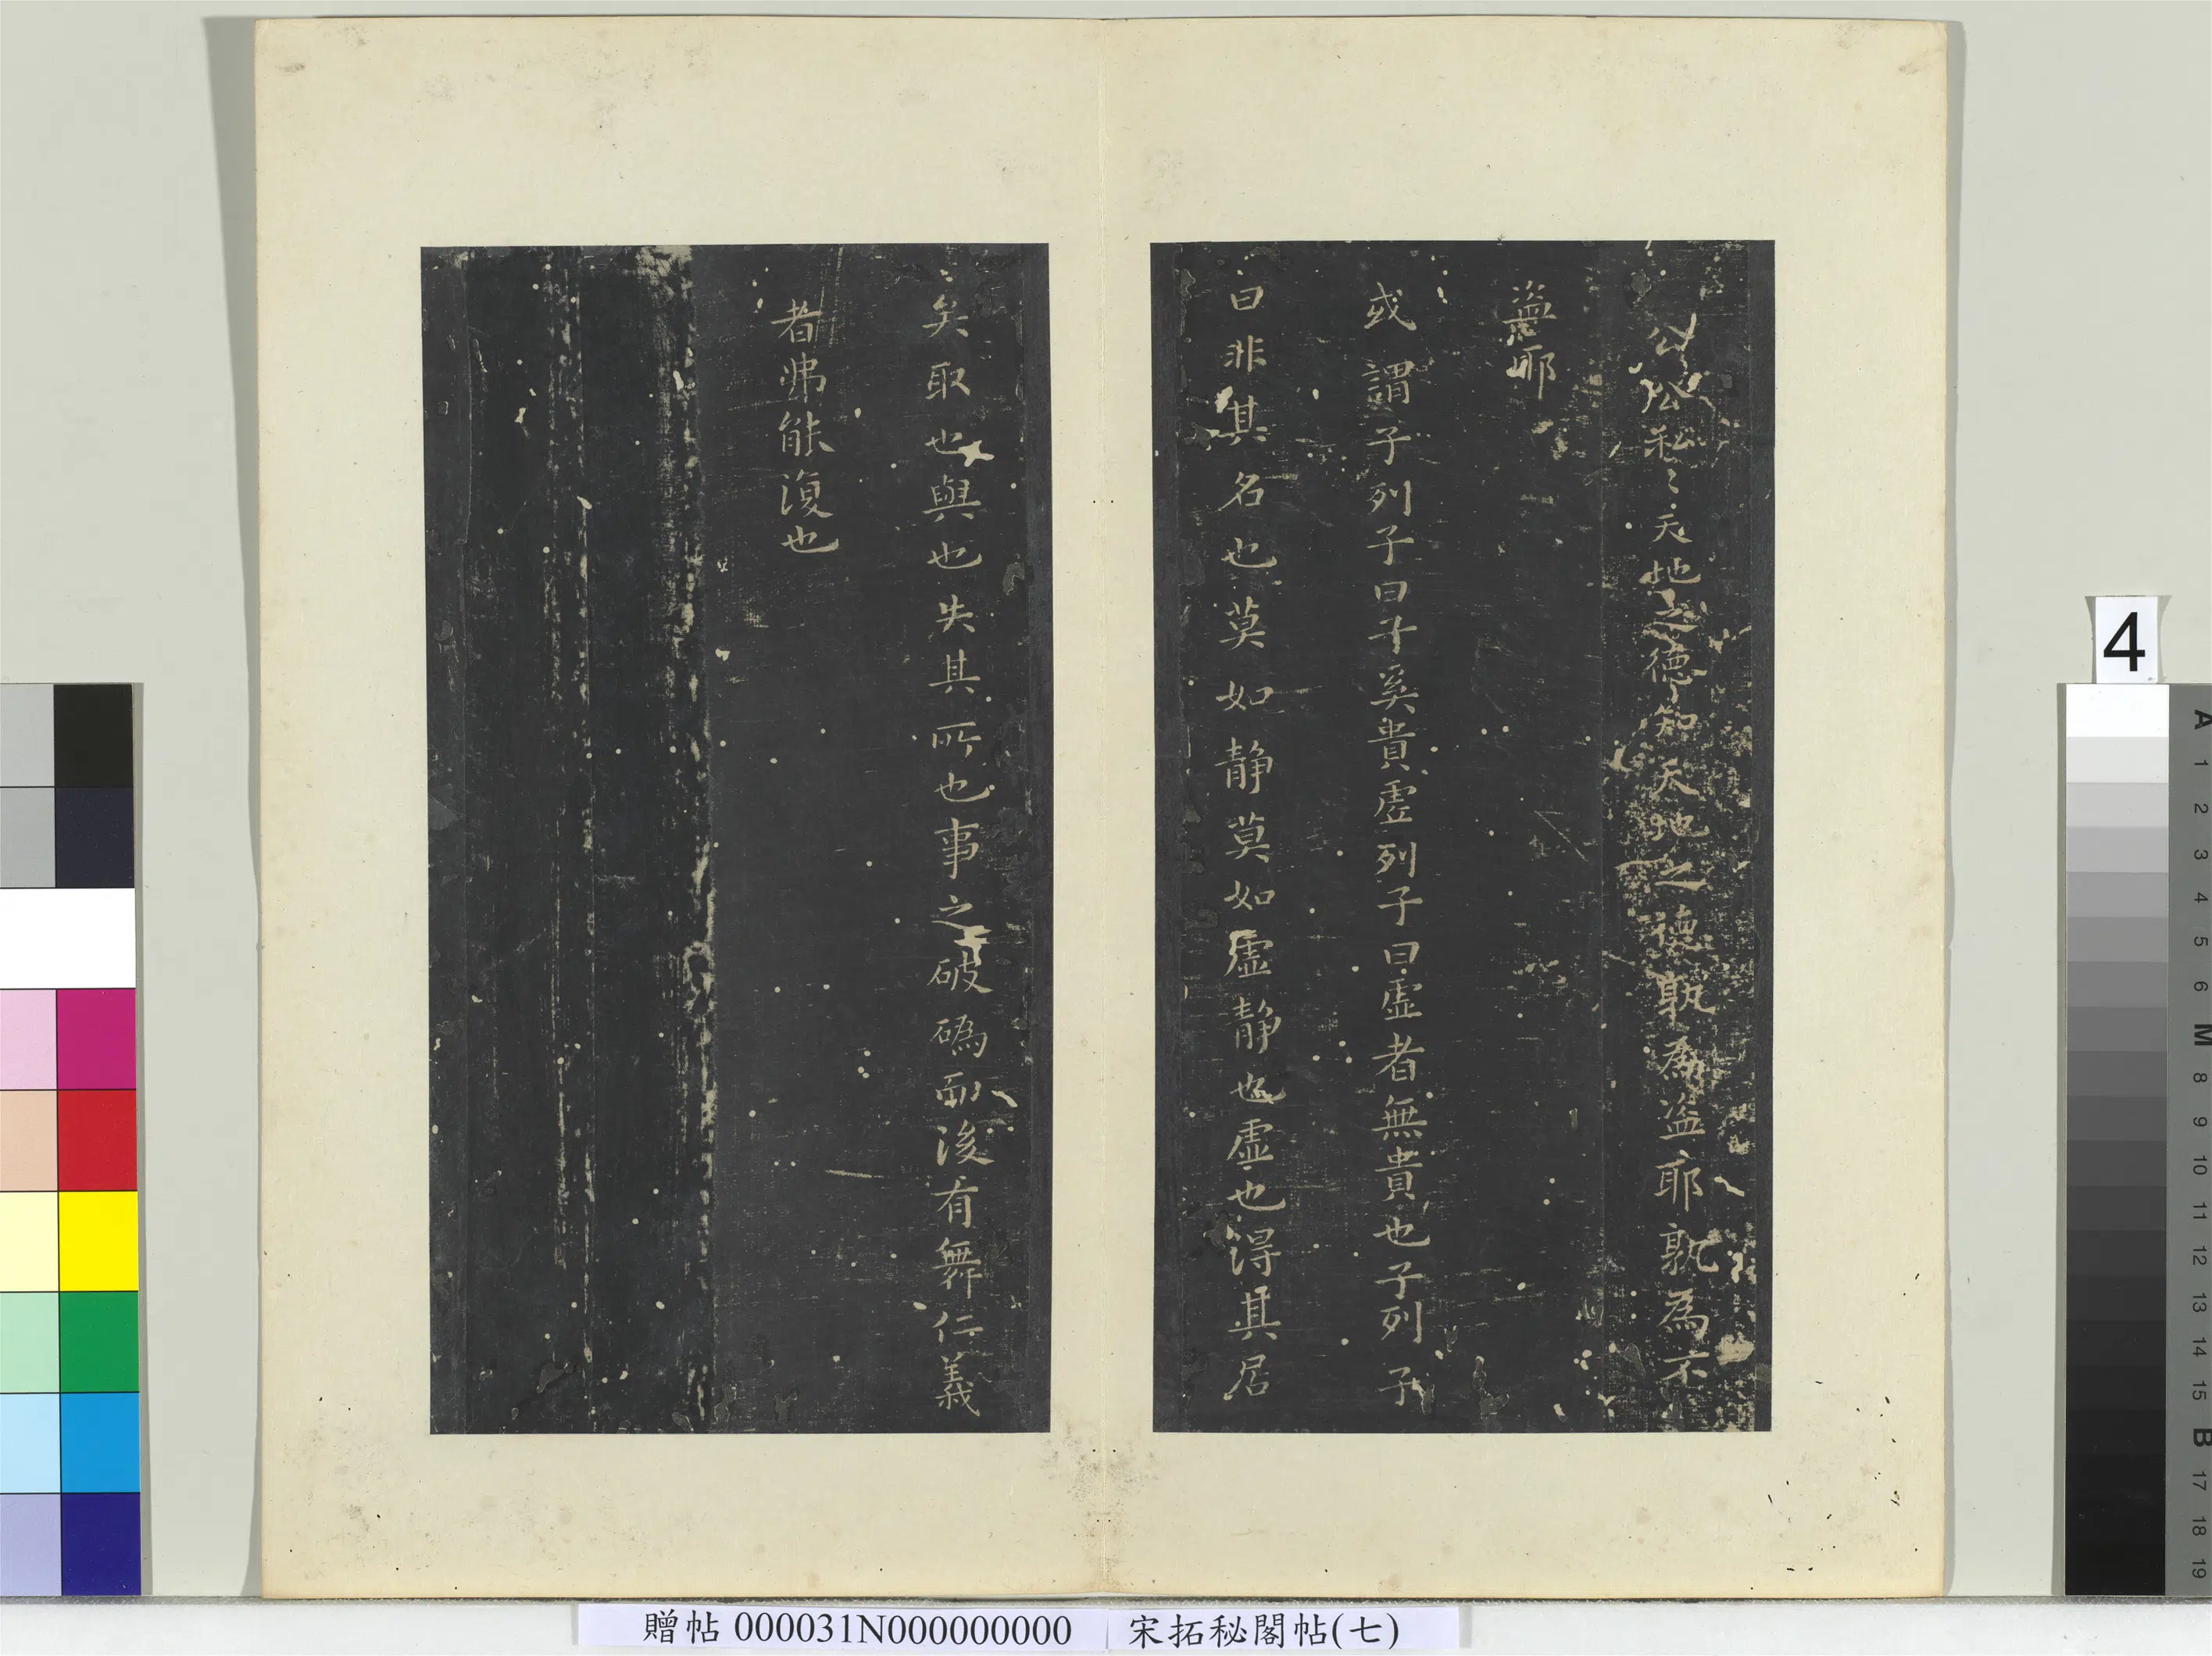 公公私私天地之德知天地之德孰為盜耶孰為不
盜耶
或謂子列子曰子奚貴虛列子曰虛者無貴也子列子
曰非其名也莫如靜莫如虛靜也虛也得其居
矣取也與也失其所也事之破磘而後有舞仁義
者弗能復也
贈帖 000031N000000000
宋拓秘閣帖(七)
4
A
1
2
3
4
5
6
M
8
9
10
11
12
13
14
15
B
17
18
19